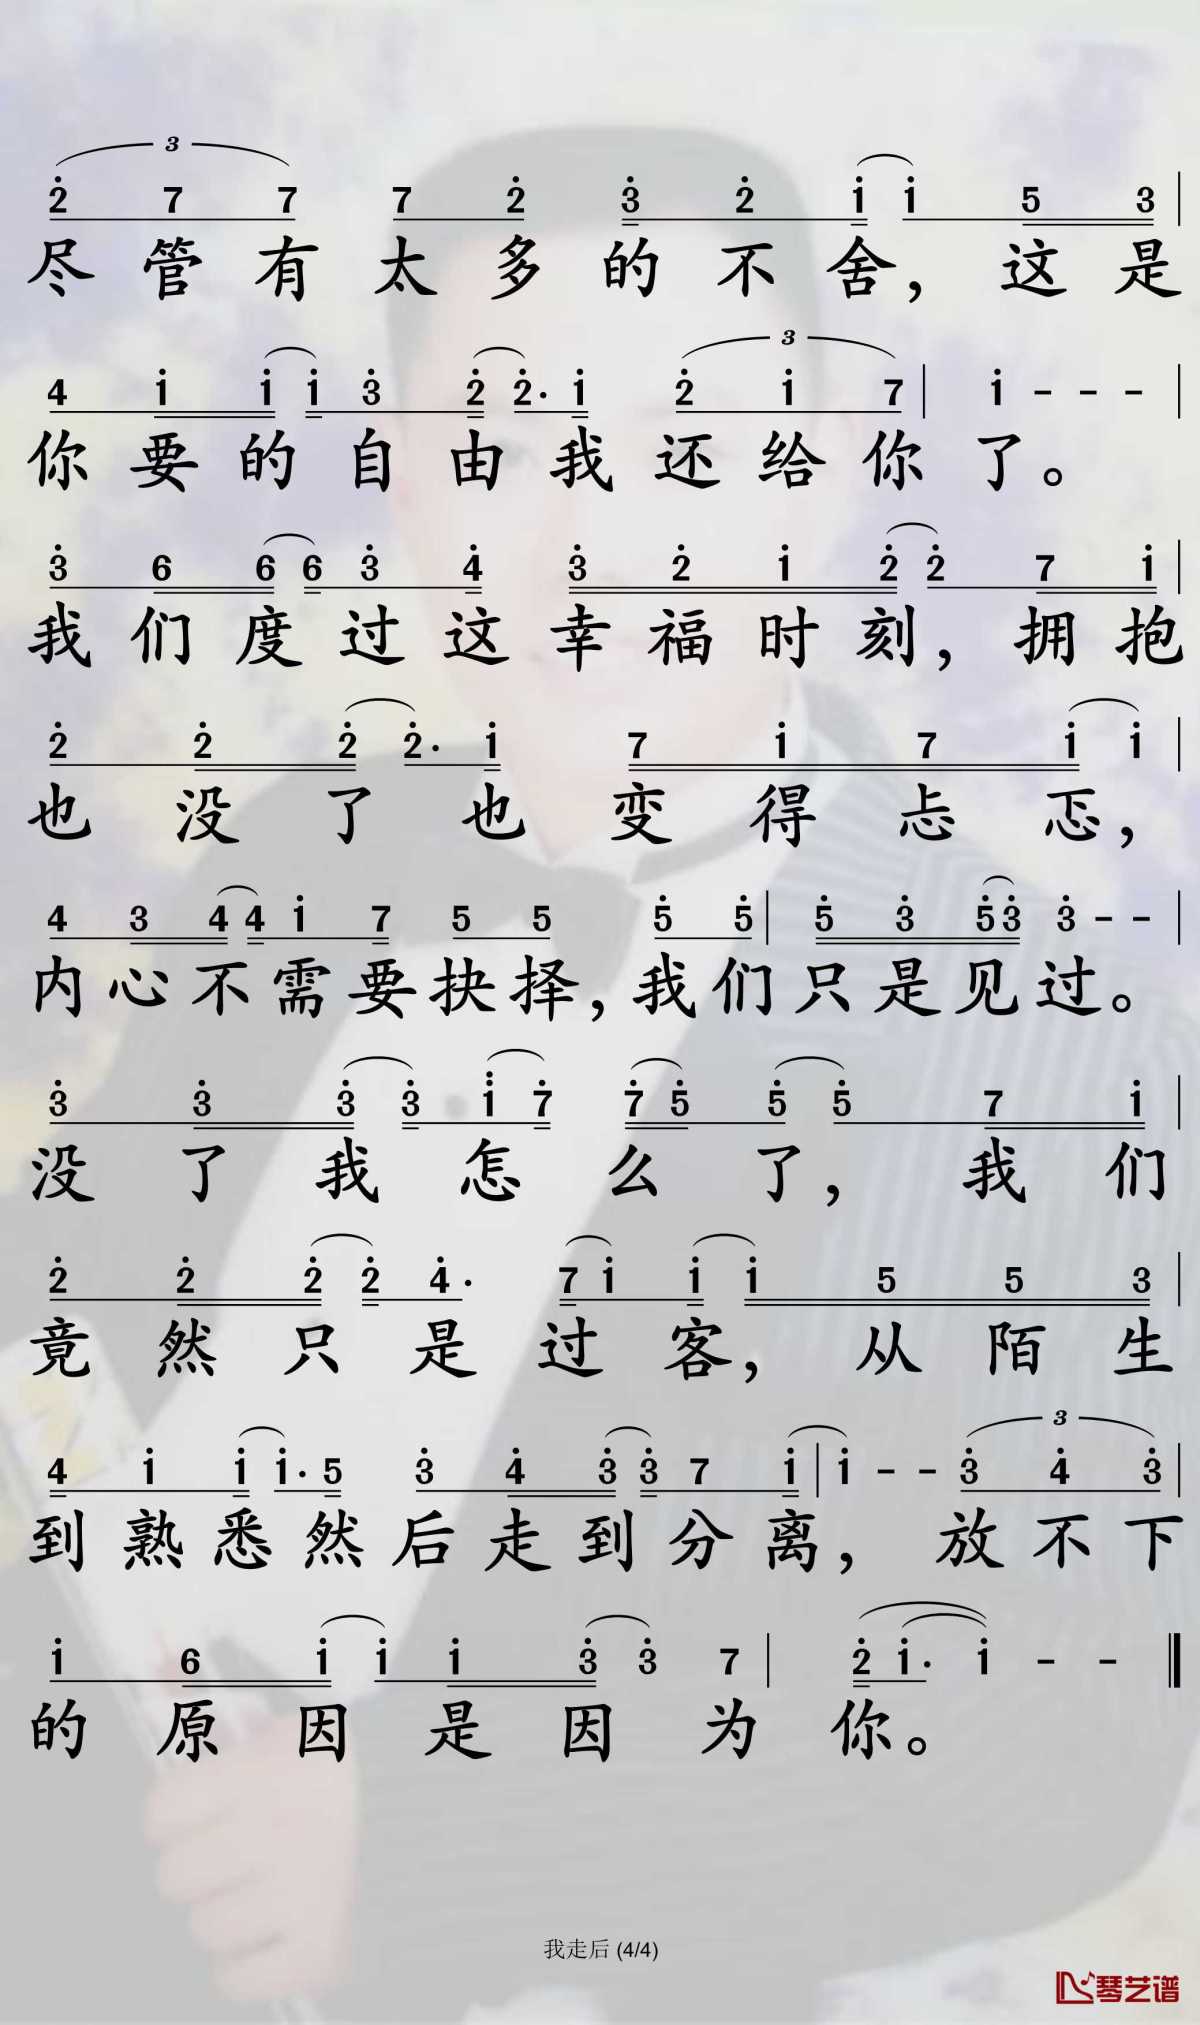 3
2 7 7 7 2 3 2 1 1 5 3
尽管有太多的不舍，这是
3
4 1 1 1 3 2 2· 1 2 1 7 | 1 - - -
你要的自由我还给你了。
3 6 6 6 3 4 3 2 1 2 2 7 1
我们度过这幸福时刻，拥抱
2 2 2 2· 1 7 1 7 1 1
也没了也变得忐忑，
4 3 4 4 1 7 5 5 5 5 | 5 3 5 3 3 - -
内心不需要抉择，我们只是见过。
3 3 3 3 1 7 7 5 5 5 7 1
没了我怎么了，我们
2 2 2 2 4· 7 1 1 1 5 5 3
竟然只是过客，从陌生
3
4 1 1 1· 5 3 4 3 3 7 1 | 1 - - 3 4 3
到熟悉然后走到分离，放不下
1 6 1 1 1 3 3 7 | 2 1· 1 - -
的原因是因为你。
我走后 (4/4)
琴艺谱